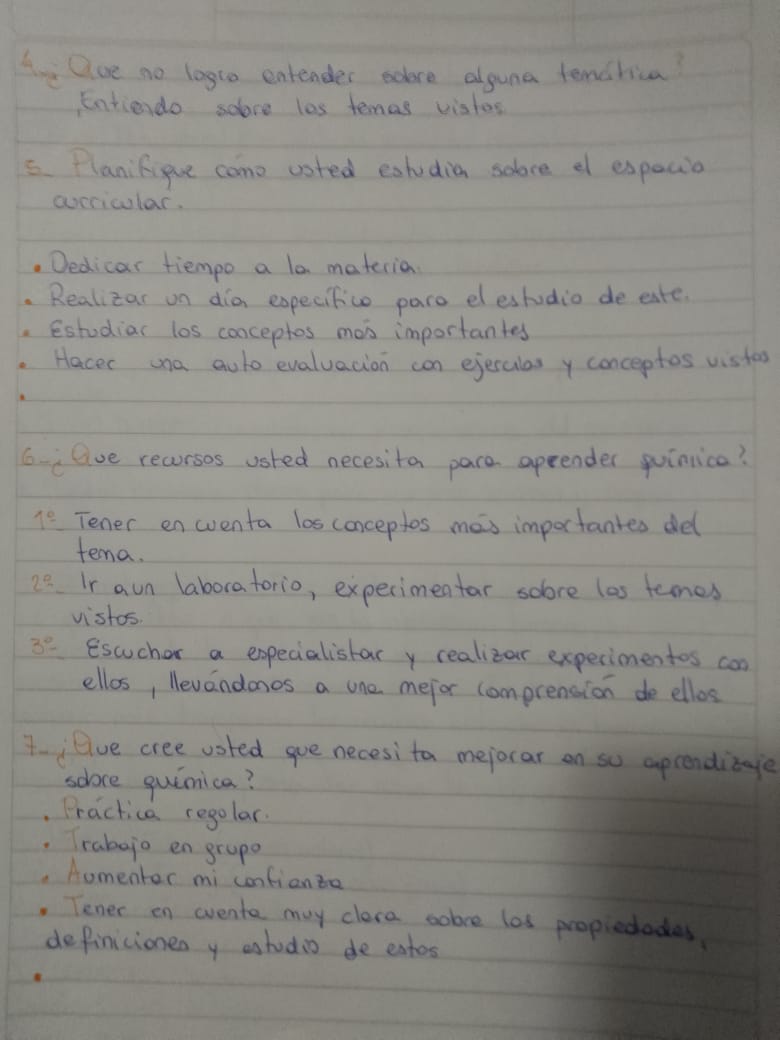 4-¿Que no logro entender sobre alguna temática?
Entiendo sobre los temas vistos
5- Planifique como usted estudia sobre el espacio
curricular.
• Dedicar tiempo a la materia.
• Realizar un día especifico para el estudio de este.
• Estudiar los conceptos más importantes
• Hacer una auto evaluación con ejercicios y conceptos vistos
•
6-¿Que recursos usted necesita para aprender química?
1º- Tener en cuenta los conceptos más importantes del
tema.
2º- Ir aun laboratorio, experimentar sobre los temas
vistos.
3º- Escuchar a especialistar y realizar experimentos con
ellos, llevándonos a una mejor comprensión de ellos
7-¿Que cree usted que necesita mejorar en su aprendizaje
sobre química?
• Práctica regolar.
• Trabajo en grupo
• Aumentar mi confianza
• Tener en cuenta muy clara sobre las propiedades,
definiciones y estudio de estos
•